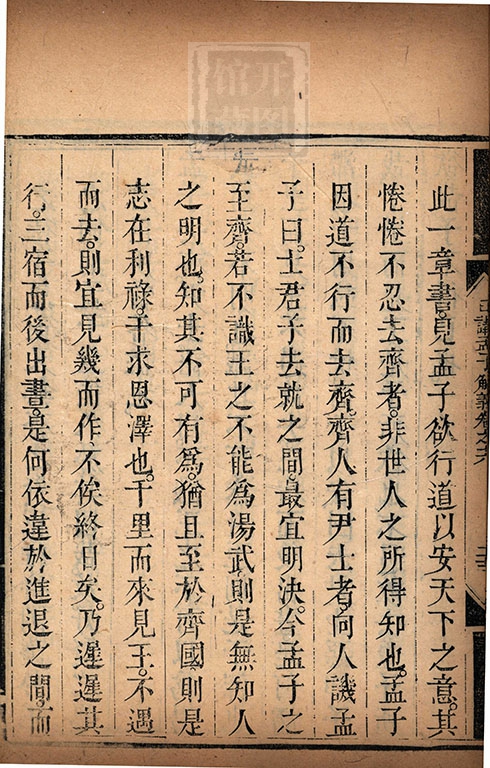 此一章書。見孟子欲行道以安天下之意。其
惓惓不忍去齊者。非世人之所得知也。孟子
因道不行而去齊。齊人有尹士者。向人譏孟
子曰。士君子去就之間。最宜明決。今孟子之
至齊。若不識王之不能為湯武則是無知人
之明也。知其不可有為。猶且至於齊國則是
志在利祿。干求恩澤也。千里而來見王。不遇
而去。則宜見幾而作。不俟終日矣。乃遲遲其
行。三宿而後出晝。是何依違於進退之間。而